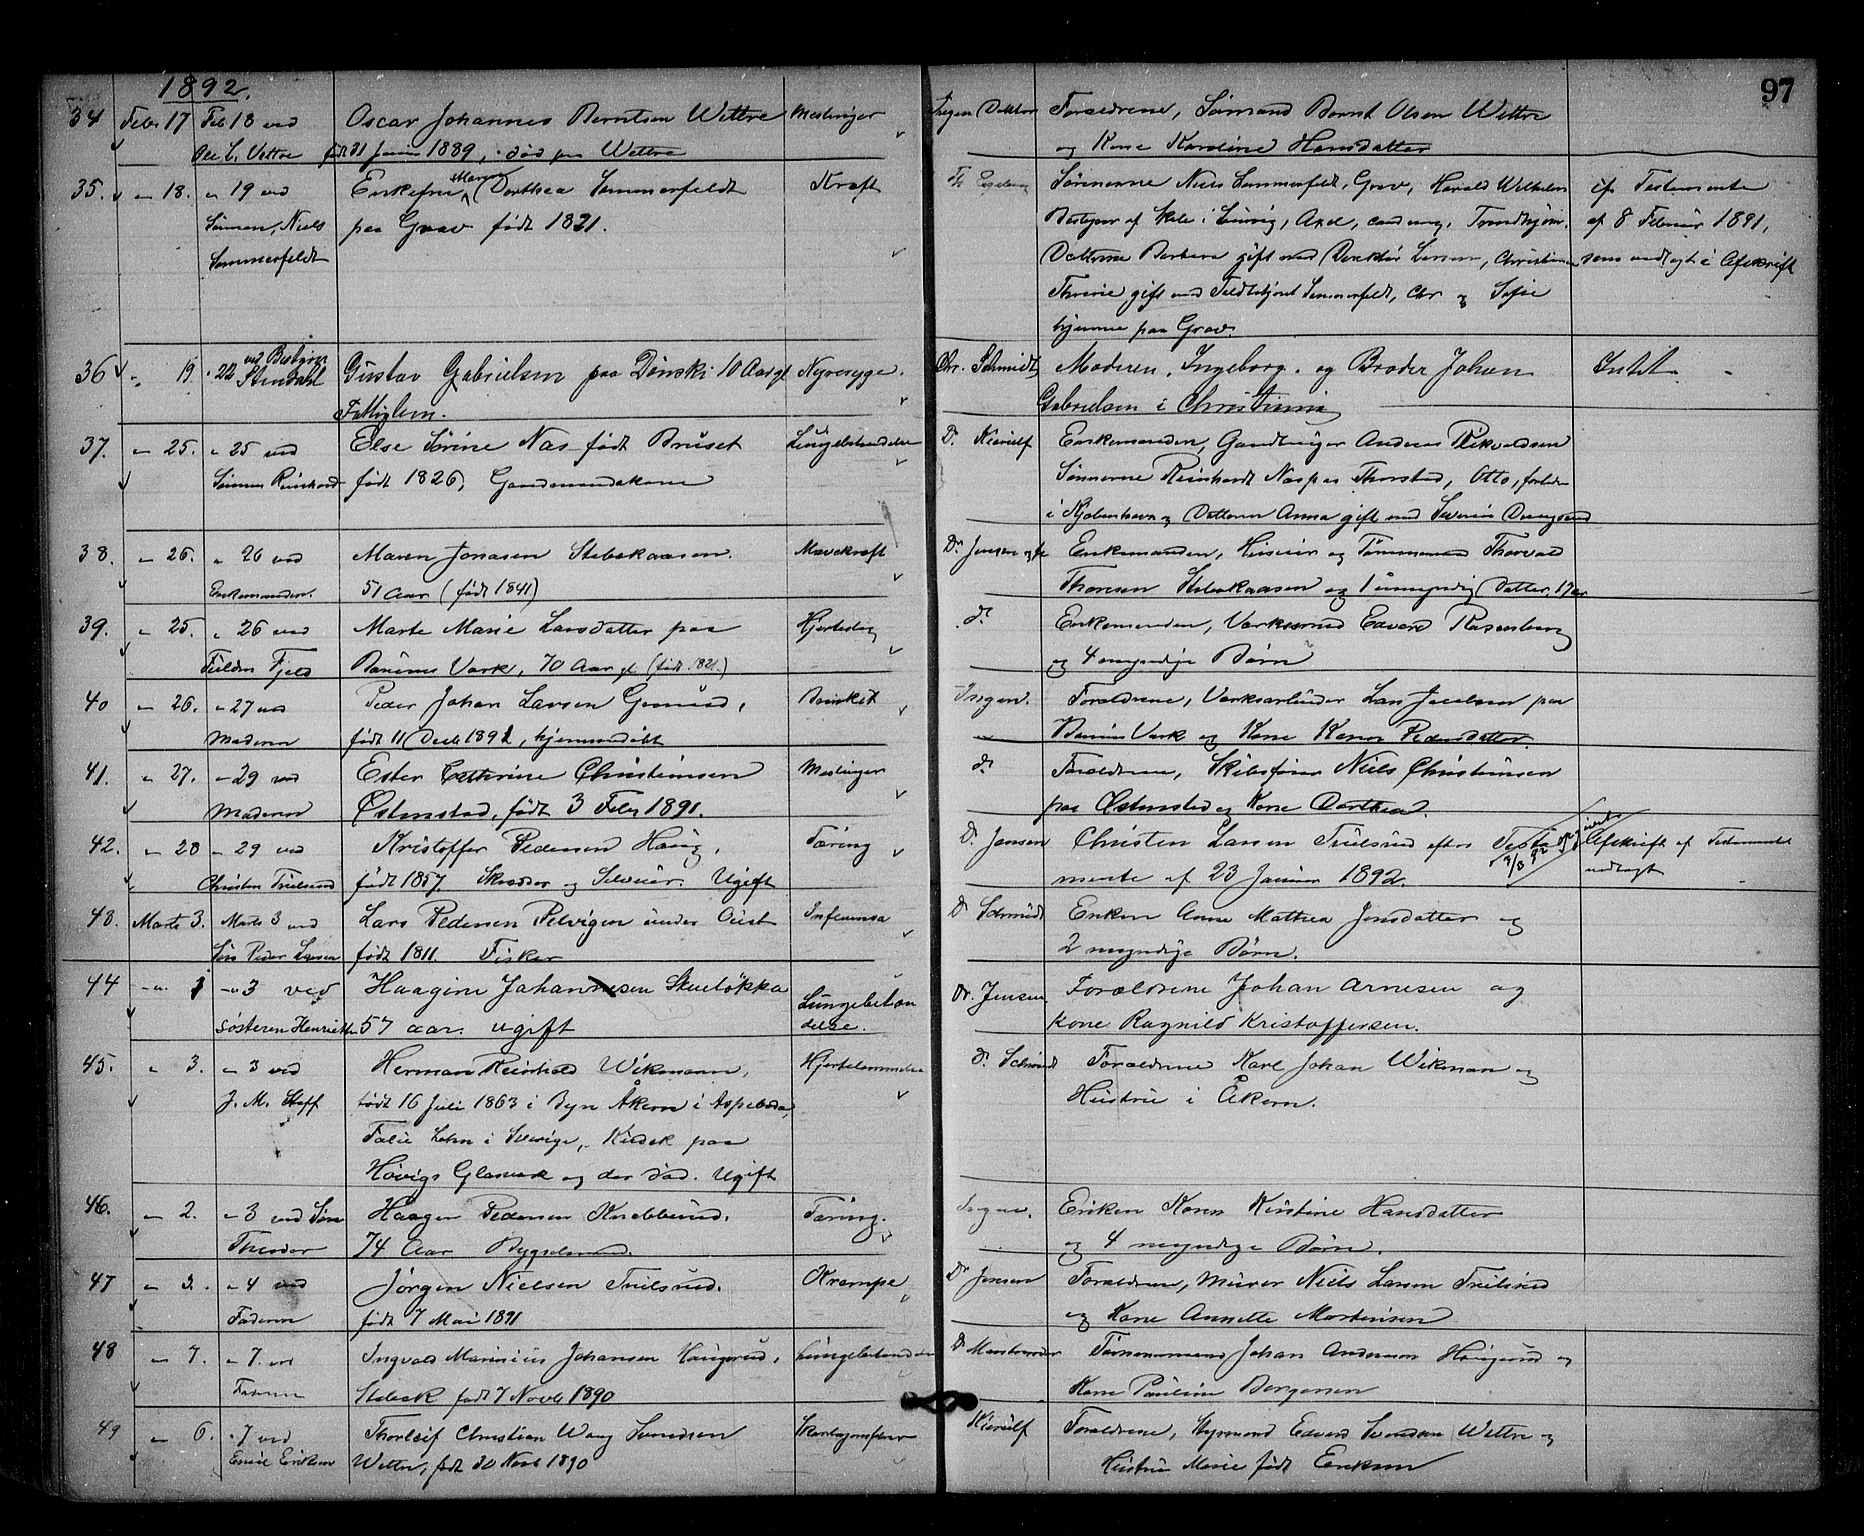 1892.
97
34 Febr 17 Feb 18 ved Oscar Johannes Berntsen Wettre Meslinger Ingen Doktor Forældrene, Sømand Bernt Olsen Wettre
Ole L. Vettre født 21 1889, død paa Wettre og Kone Karoline Hansdatter
35. " 18. " 19 ved Enkefru Maren Dorthea Sommerfeldt Kræft Th Sønnerne Niels Sommerfeldt, Grav, Harald Wilhelm if Testamente
Sønnen, Niels paa Grav født 1821. Bestyrer af Skole i Axel, cand. Trondhjem. af 8 Februar 1891,
Sommerfeldt Døttrene Barbara gift med Direktør Larsen, Christiania som i Afskrift
gift med Sommerfeldt, Chr og Sofie
hjemme paa Grav
36 " 19 " 22 ved Bestyrer Gustav Gabrielsen paa Dønski 10 Aar gl Nyresyge. Dr. Schmidt Moderen, Ingeborg og Broder Johan Intet
Stendahl Fattiglem. Gabrielsen i Christiania
37. " 25. " 25 ved Else Sørine Næs født Bruset Lungebetændelse D. Kierulf Enkemanden, Gaardbruger Andreas
Sønnen Reinhard født 1826, Gaardmandskone Sønnerne Reinhardt Næs paa Thorstad, Otto,
i Kjøbenhavn og Datteren Anna gift med Severin
38. " 26. " 26 ved Maren Jonasen Stabekaasen. Mavekræft Dr. Jensen Enkemanden, Huseier og Tømmermand Thorvald
Enkemanden. 51 Aar (født 1841) Thoresen Stabekaasen og 1 umyndig Datter, 17 Aar
39. " 25. " 26 ved Marte Marie Larsdatter paa Hjerteslag do Enkemanden, Værksmand Edvard Rosenberg
Fjeld Bærums Værk, 70 Aar gl (født 1821.) og 4 myndige Børn
40 " 26. " 27 ved Peder Johan Larsen Bronkit Ingen. Forældrene, Værksarbeider Lars Jacobsen paa
Moderen født 11 Decb 1891, hjemmedøbt Bærums Værk og Kone Karen Pedersdatter.
41. " 27. " 29 ved Ester Cathrine Christensen Meslinger do Forældrene, Skibsfører Niels Christensen
Moderen Østenstad, født 3 Febr 1891. paa Østenstad og Kone Dorthea.
42. " 28 " 29 ved Kristoffer Pedersen Haug, Tæring D. Jensen Christen Larsen Trulsrud efter Testa- Afskrift af Testamentet
Christen Trulsrud født 1857. Skrædder og Selveier. Ugift mente af 23 Januar 1892. 9/3 92 vedlagt
43. Marts 3. Marts 3 ved Lars Pedersen Pelvigen under Oust Infuensa D Schmidt Enken Anne Mathea Jonsdatter og
Søn Peder Larsen født 1811. Fisker 2 myndige Børn.
44 " 1 " 3 ved Haagine Johannesen Skueløkka Lungebetæn Dr. Jensen Forældrene Johan Arnesen og
søsteren Henriette 57 aar. ugift delse. kone Ragnild Kristoffersen.
45. " 3. " 3 ved Herman Reinhold Wikmann, Hjertelammelse D. Schmidt Forældrene Karl Johan Wikman og
J. M. Staff født 16 Juli 1863 i Byn Åkern i Aspeboda, Hustru i Åkern.
Falu Lehn i Sverige, Kudsk paa
Høvigs Glasværk og der død. Ugift
46. " 2. " 3 ved Søn Haagen Pedersen Knabberud. Tæring. Ingen. Enken Karen Kirstine Hansdatter
Theodor 74 Aar Bygselmand. og 4 myndige Børn.
47 " 3. " 4 ved Jörgen Nielsen Trulsrud. Krampe Dr Jensen Forældrene, Murer Niels Larsen Trulsrud
Faderen født 7 Mai 1891 og Kone Annette Mortensen
48 " 7. " 7. ved Ingvald Marinius Johansen Haugerud, Lungebetændelse D Forældrene Johan Andersen Haugerud og
Faderen Stabæk født 7 Novb 1890 Kone Pauline Borgersen
49 " 6. " 7 ved Thorleif Christian Wang Svendsen Skarlagensfeber Kierulf Forældrene, Styrmand Edvard Svendsen Wettre og
Emil Eriksen Wettre, født 30 Novb 1890 Hustru Marie født Eriksen